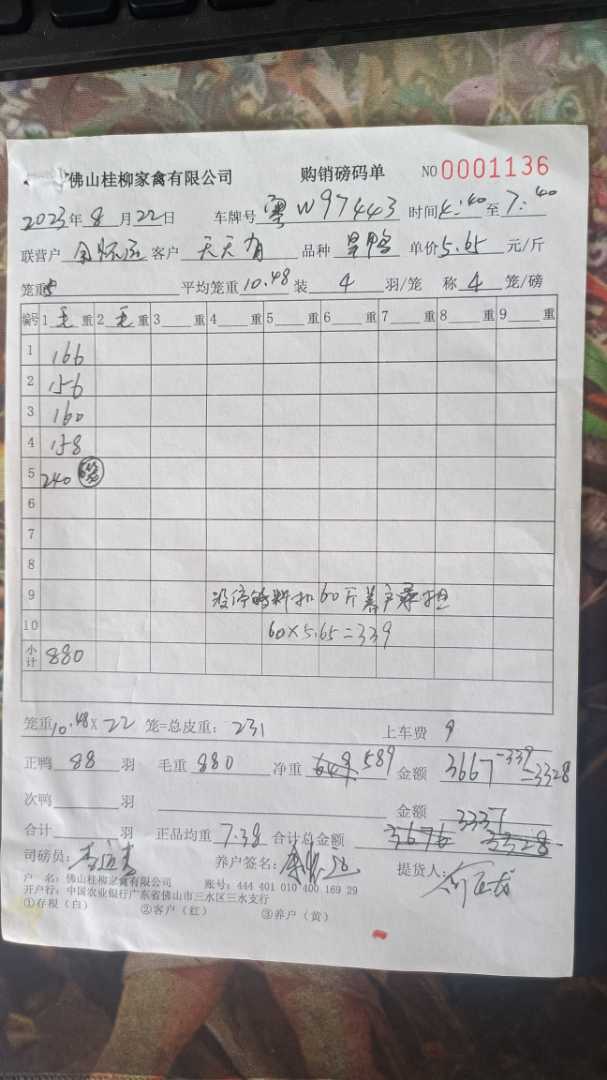 佛山桂柳家禽有限公司 购销磅码单 NO 0001136
2023年8月22日 车牌号 粤W97443 时间 4:40 至 7:40
联营户 客户 天天旺 品种 旱鸭 单价 5.65 元/斤
笼重 平均笼重 10.48 装 4 羽/笼 称 4 笼/磅
编号 1 毛 重 2 毛 重 3 重 4 重 5 重 6 重 7 重 8 重 9 重
1 166
2 156
3 160
4 158
5 240
6
7
8
9 没停 料扣60斤养户承担
10 60×5.65=339
小计 880
笼重 10.48×22 笼=总皮重: 231 上车费 9
正鸭 88 羽 毛重 880 净重 649 589 金额 3667-339=3328
次鸭 羽 金额 3337
合计 羽 正品均重 7.38 合计总金额 3676 3328
司磅员: 养户签名: 提货人:
户 名: 佛山桂柳家禽有限公司 账号: 444 401 010 400 169 29
开户行: 中国农业银行广东省佛山市三水区三水支行
①存根(白) ②客户(红) ③养户(黄)